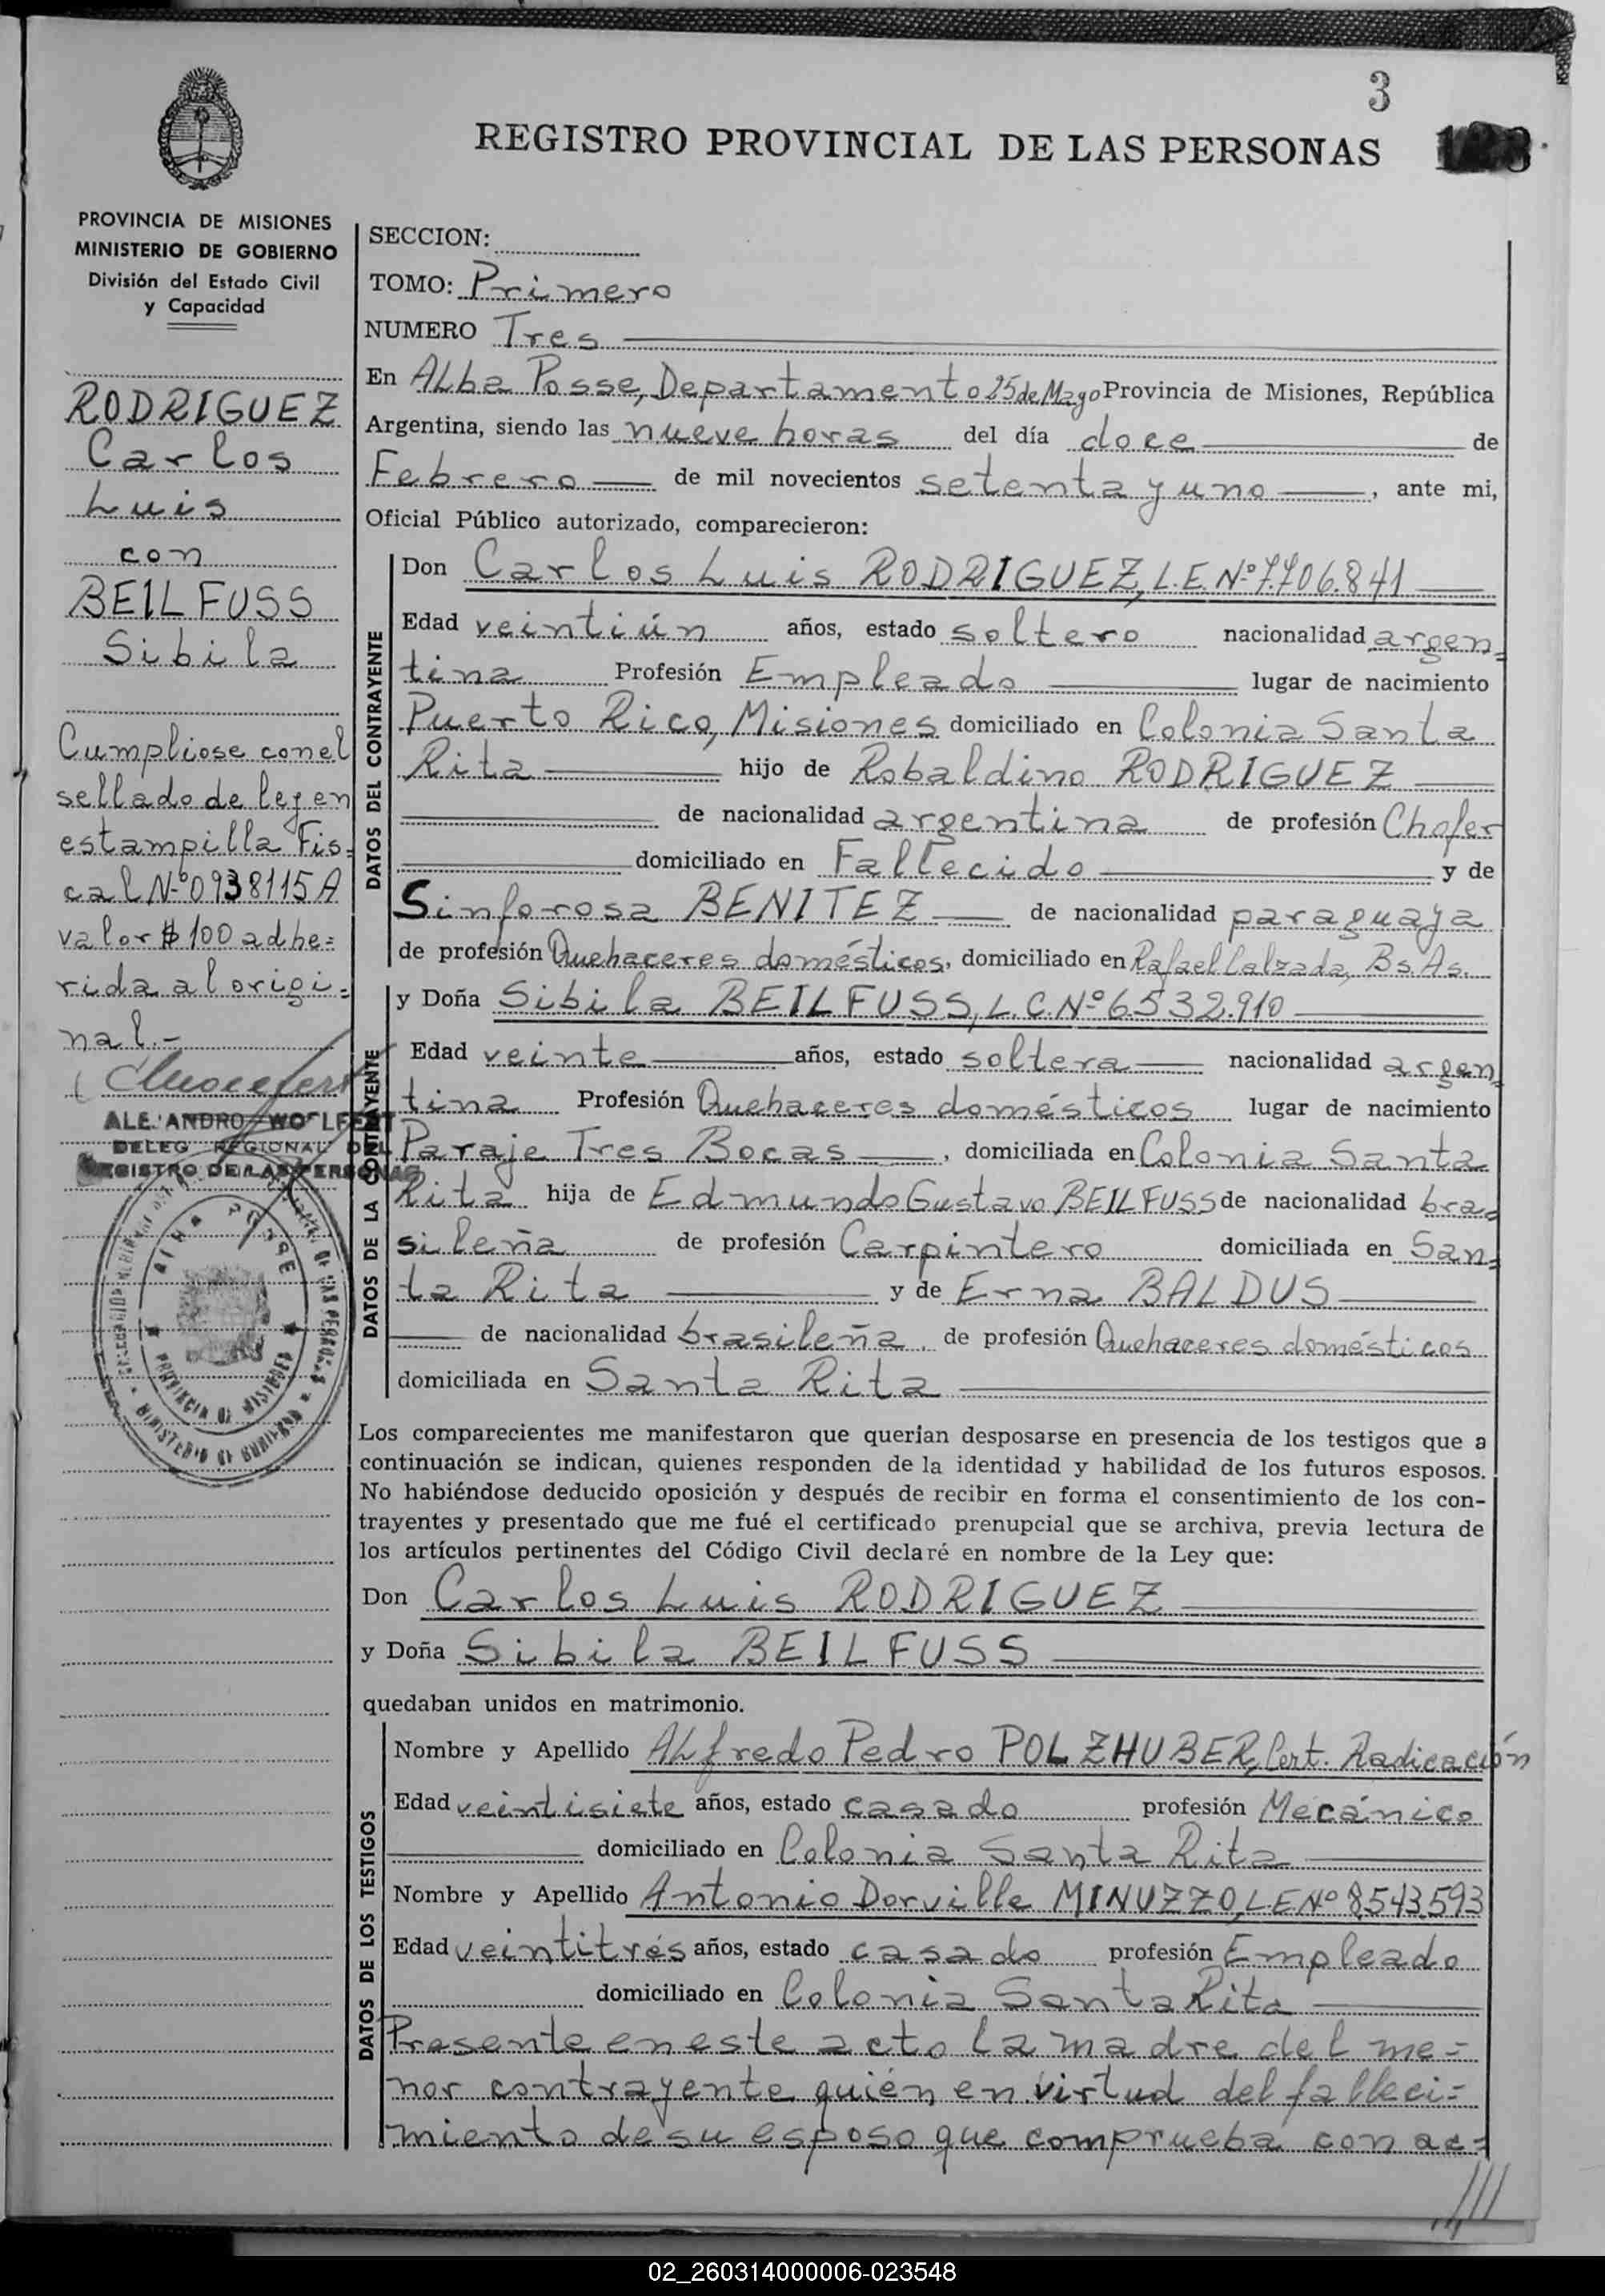 3
REGISTRO PROVINCIAL DE LAS PERSONAS
PROVINCIA DE MISIONES
MINISTERIO DE GOBIERNO
División del Estado Civil
y Capacidad
RODRIGUEZ
Carlos
Luis
con
BEILFUSS
Sibila
Cumpliose con el
sellado de ley en
estampilla Fis=
cal Nº 0938115A
valor $ 100 adhe=
rida al origi=
nal.-
DELEG REGIONAL DEL
REGISTRO DE LAS PERSONAS
ALBA POSSE
PROVINCIA DE MISIONES
MINISTERIO DE GOBIERNO
SECCION:
TOMO: Primero
NUMERO Tres
En Alba Posse, Departamento 25 de Mayo Provincia de Misiones, República
Argentina, siendo las nueve horas del día doce de
Febrero de mil novecientos setenta y uno, ante mi,
Oficial Público autorizado, comparecieron:
DATOS DEL CONTRAYENTE
Don Carlos Luis RODRIGUEZ, L.E.Nº 7.706.841
Edad veintiún años, estado soltero nacionalidad argen=
tina Profesión Empleado lugar de nacimiento
Puerto Rico, Misiones domiciliado en Colonia Santa
Rita hijo de Robaldino RODRIGUEZ
de nacionalidad argentina de profesión Chofer
domiciliado en Fallecido y de
Sinforosa BENITEZ de nacionalidad paraguaya
de profesión Quehaceres domésticos, domiciliado en Rafael Calzada, Bs.As.
DATOS DE LA CONTRAYENTE
y Doña Sibila BEILFUSS, L.C.Nº 6.532.910
Edad veinte años, estado soltera nacionalidad argen=
tina Profesión Quehaceres domésticos lugar de nacimiento
Paraje Tres Bocas, domiciliada en Colonia Santa
Rita hija de Edmundo Gustavo BEILFUSS de nacionalidad bra=
sileña de profesión Carpintero domiciliada en San=
ta Rita y de Erna BALDUS
de nacionalidad brasileña, de profesión Quehaceres domésticos
domiciliada en Santa Rita
Los comparecientes me manifestaron que querían desposarse en presencia de los testigos que a
continuación se indican, quienes responden de la identidad y habilidad de los futuros esposos.
No habiéndose deducido oposición y después de recibir en forma el consentimiento de los con-
trayentes y presentado que me fué el certificado prenupcial que se archiva, previa lectura de
los artículos pertinentes del Código Civil declaré en nombre de la Ley que:
Don Carlos Luis RODRIGUEZ
y Doña Sibila BEILFUSS
quedaban unidos en matrimonio.
DATOS DE LOS TESTIGOS
Nombre y Apellido Alfredo Pedro POLZHUBER, Cert. Radicación
Edad veintisiete años, estado casado profesión Mecánico
domiciliado en Colonia Santa Rita
Nombre y Apellido Antonio Dorville MINUZZO, L.E.Nº 8.543.593
Edad veintitrés años, estado casado profesión Empleado
domiciliado en Colonia Santa Rita
Presente en este acto la madre del me=
nor contrayente quién en virtud del falleci=
miento de su esposo que comprueba con ac=
02_260314000006-023548